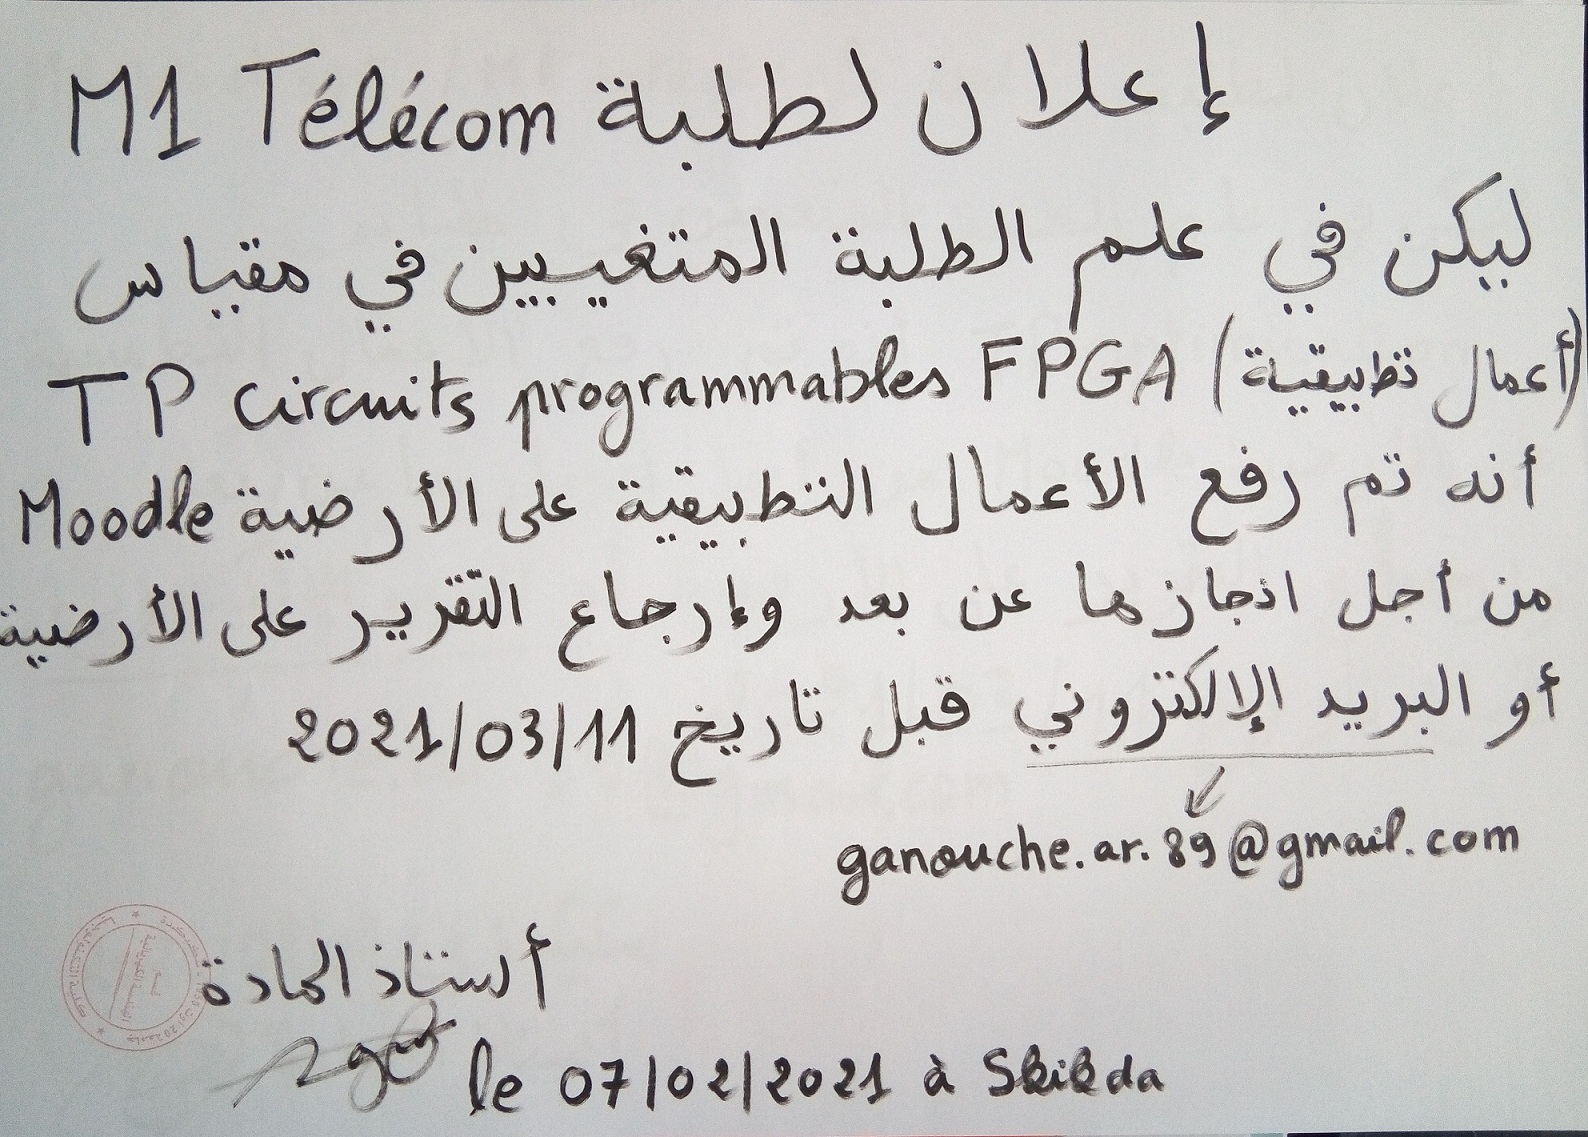 إعلان لطلبة M1 Télécom
ليكن في علم الطلبة المتغيبين في مقياس
(أعمال تطبيقية) TP circuits programmables FPGA
أنه تم رفع الأعمال التطبيقية على الأرضية Moodle
من أجل انجازها عن بعد وإرجاع التقرير على الأرضية
أو البريد الإلكتروني قبل تاريخ 2021/03/11
ganouche.ar.89@gmail.com
أستاذ المادة
le 07/02/2021 à Skikda